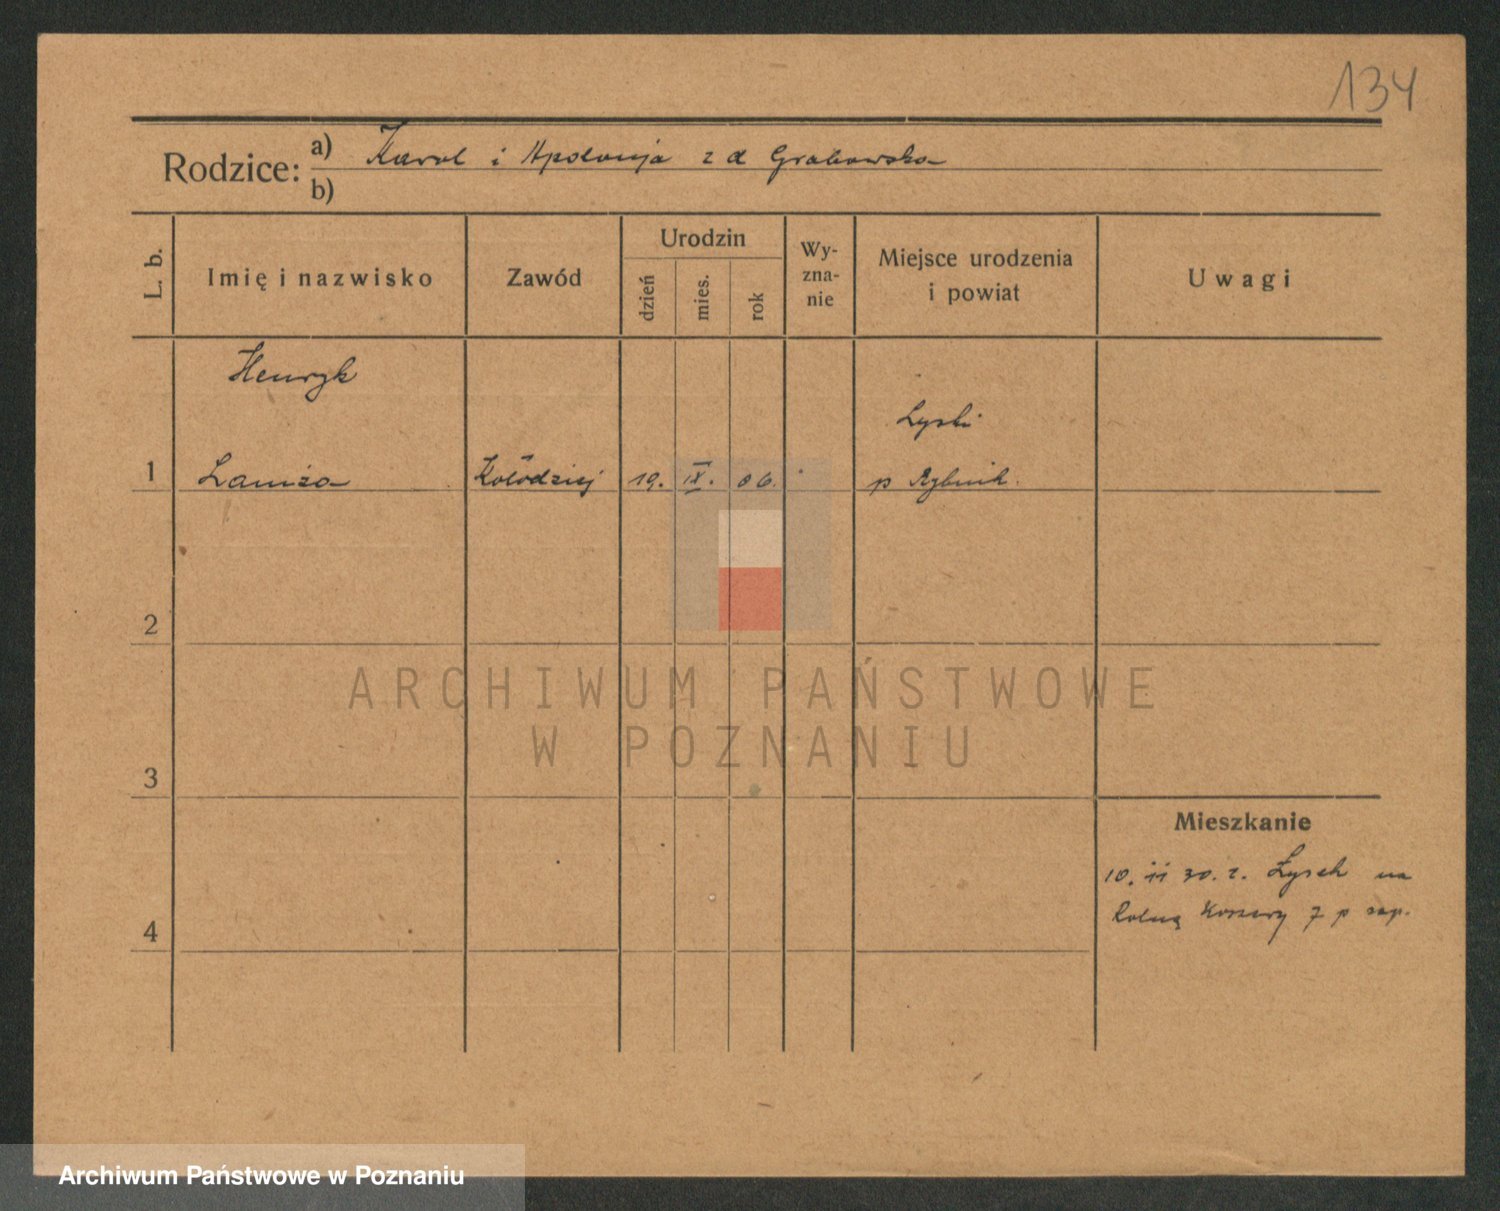 134
Rodzice: a) Karol i Apolonja z d Grabowska
b)
L. b.
Imię i nazwisko
Zawód
Urodzin
dzień
mies.
rok
Wy-
zna-
nie
Miejsce urodzenia
i powiat
Uwagi
Henryk
Lyski
1
Kołodziej 19. IX. 06.
p Rybnik.
2
3
4
Mieszkanie
10. 11 30. r. na
7 p
ARCHIWUM PAŃSTWOWE
W POZNANIU
Archiwum Państwowe w Poznaniu